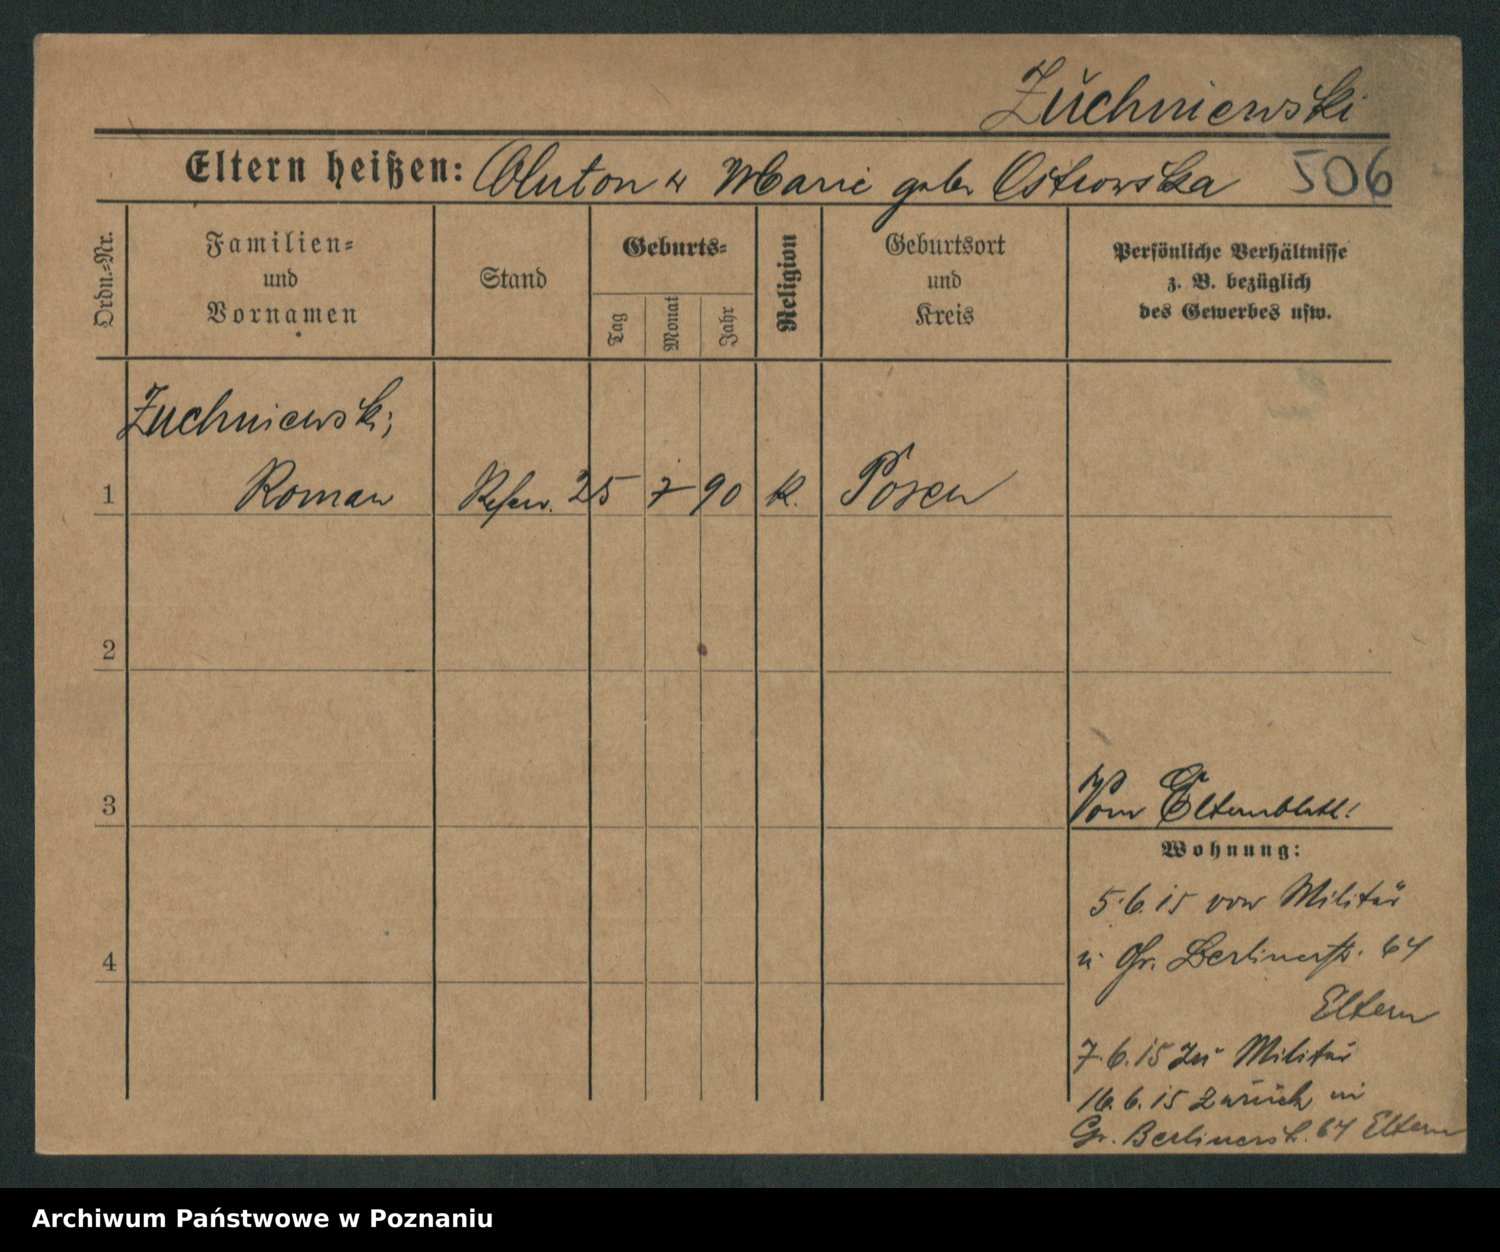 Zuchniewski
Eltern heißen: Anton u Marie geb. Ostrowska 506
Ordn.-Nr.
Familien-
und
Vornamen
Stand
Geburts-
Tag
Monat
Jahr
Religion
Geburtsort
und
Kreis
Persönliche Verhältnisse
z. B. bezüglich
des Gewerbes usw.
Zuchniewski,
1 Roman Refer. 25 7 90 K. Posen
2
3
Vom Elternblatt.
Wohnung:
5.6.15 vom Militär
in Gr. Berlinerstr. 64
4
Eltern
7.6.15 zu Militär
16.6.15 zurück in
Gr. Berlinerstr. 64 Eltern
Archiwum Państwowe w Poznaniu